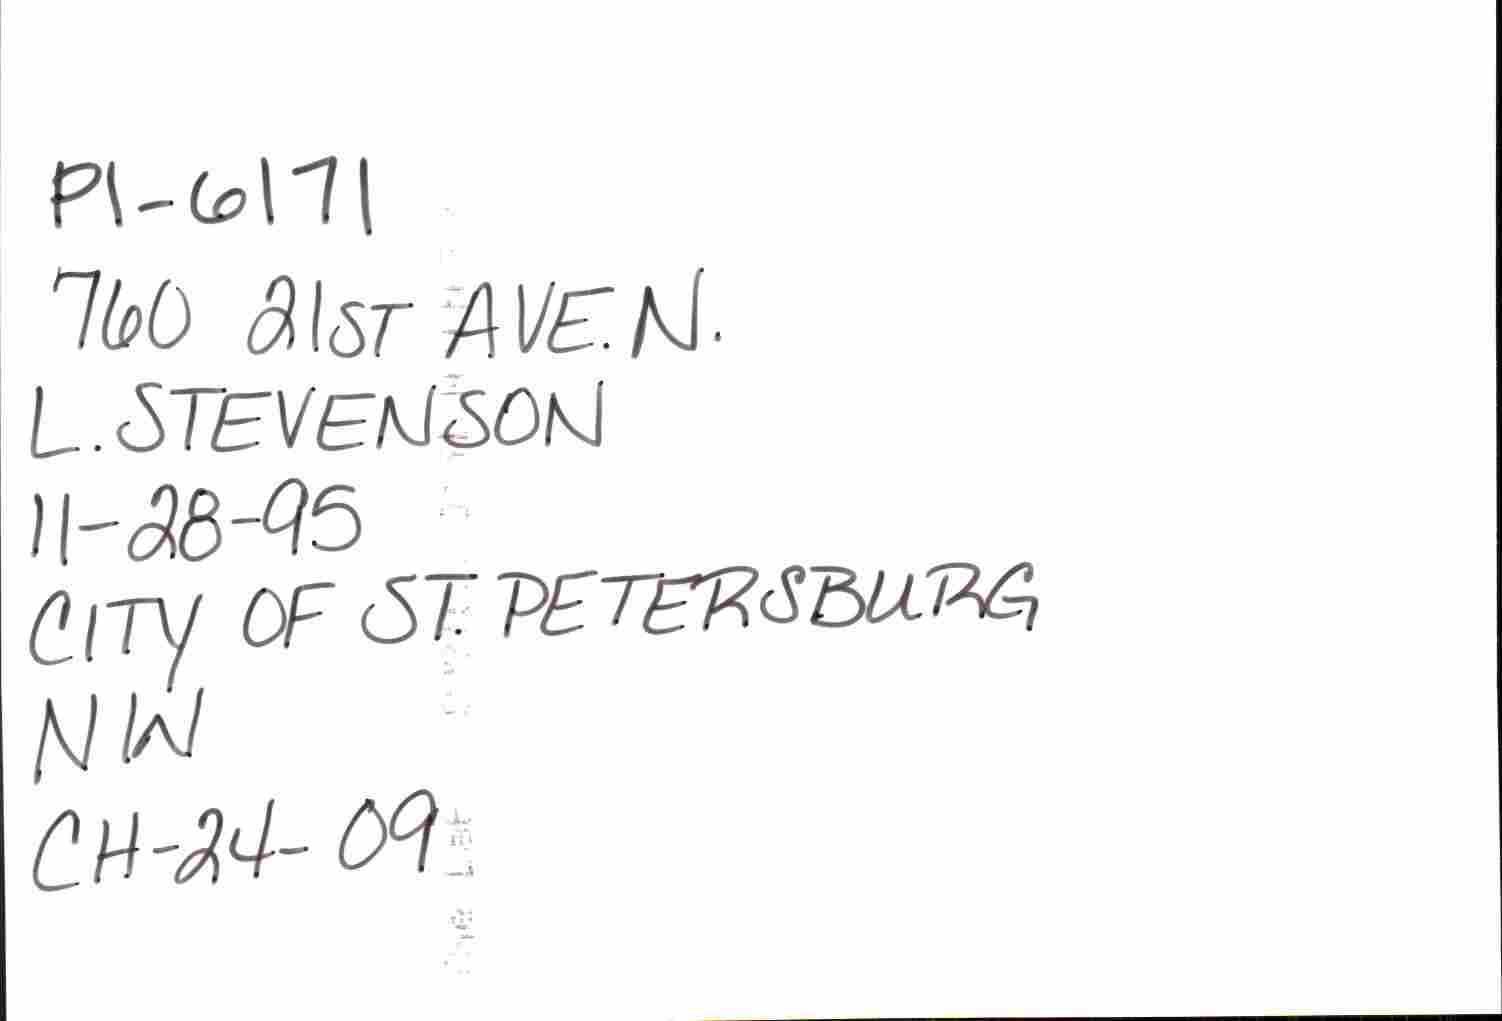 PI-6171
760 21ST AVE. N.
L. STEVENSON
11-28-95
CITY OF ST. PETERSBURG
NW
CH-24-09